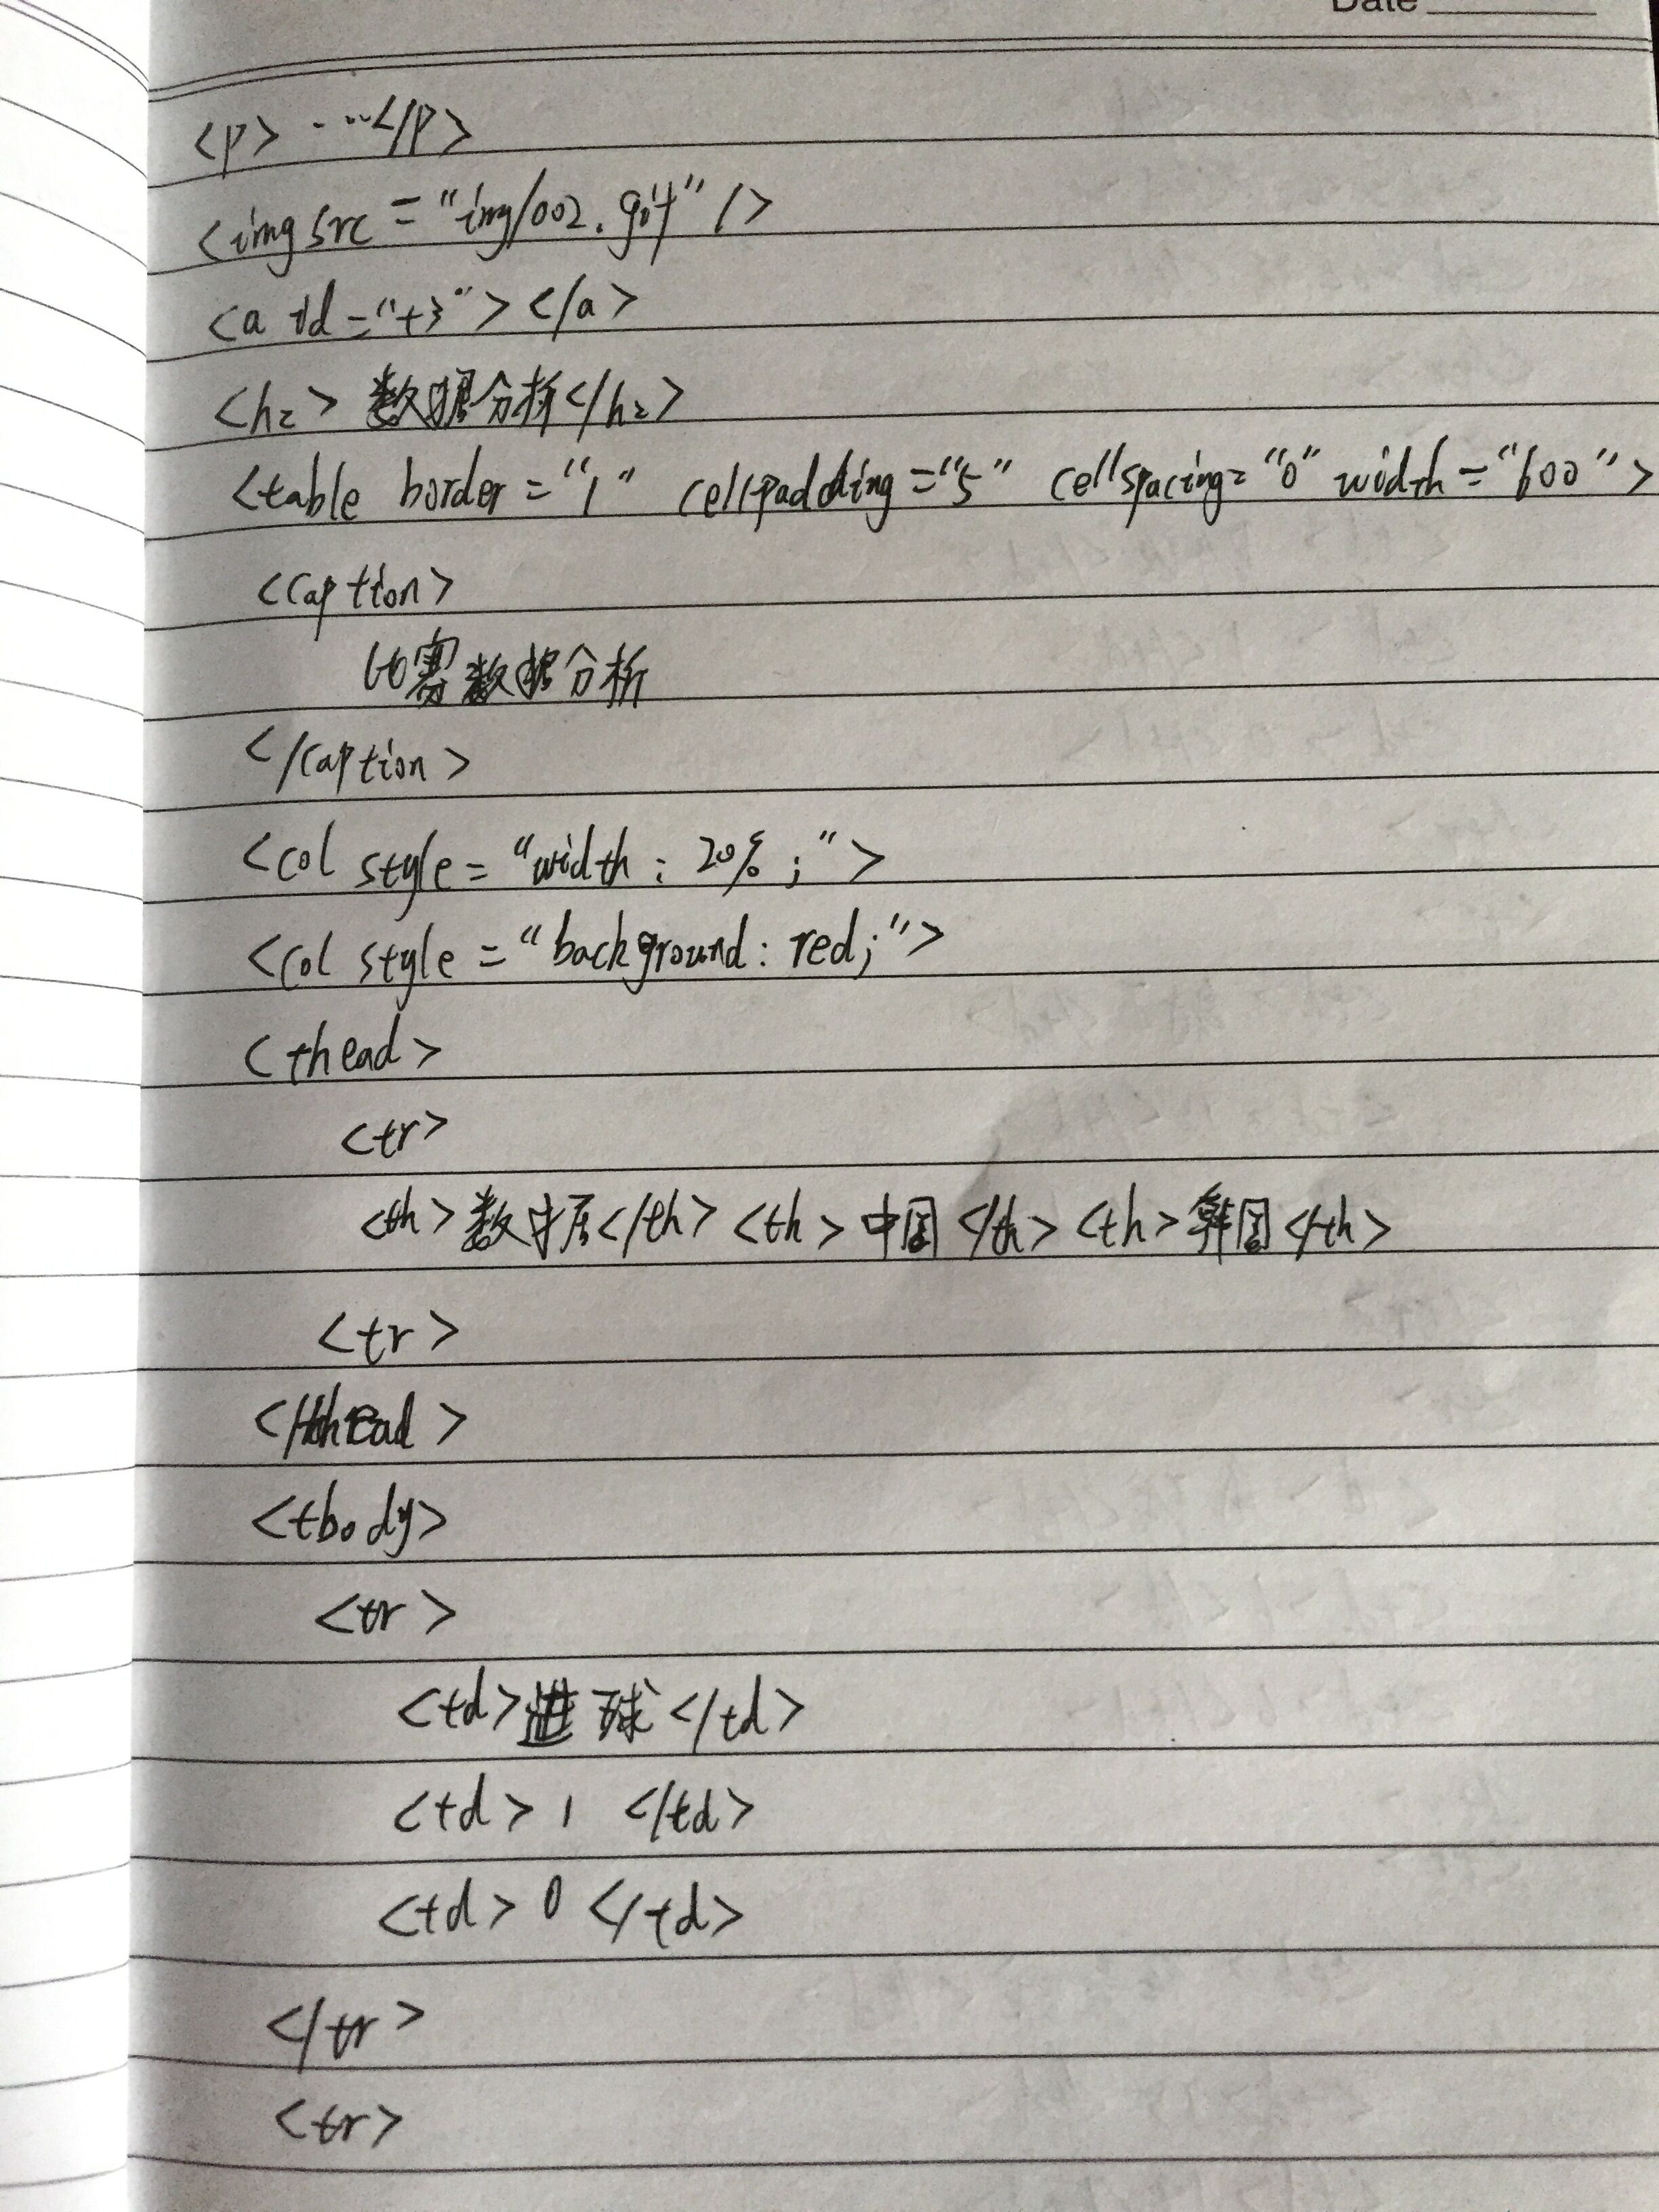 Date
<p> ·…</p>
<img src="img/002.gif" />
<a id="t3"></a>
<h2>数据分析</h2>
<table border="1" cellpadding="5" cellspacing="0" width="600">
<caption>
比赛数据分析
</caption>
<col style="width: 20%;">
<col style="background: red;">
<thead>
<tr>
<th>数据</th><th>中国</th><th>韩国</th>
<tr>
</thead>
<tbody>
<tr>
<td>进球</td>
<td>1</td>
<td>0</td>
</tr>
<tr>